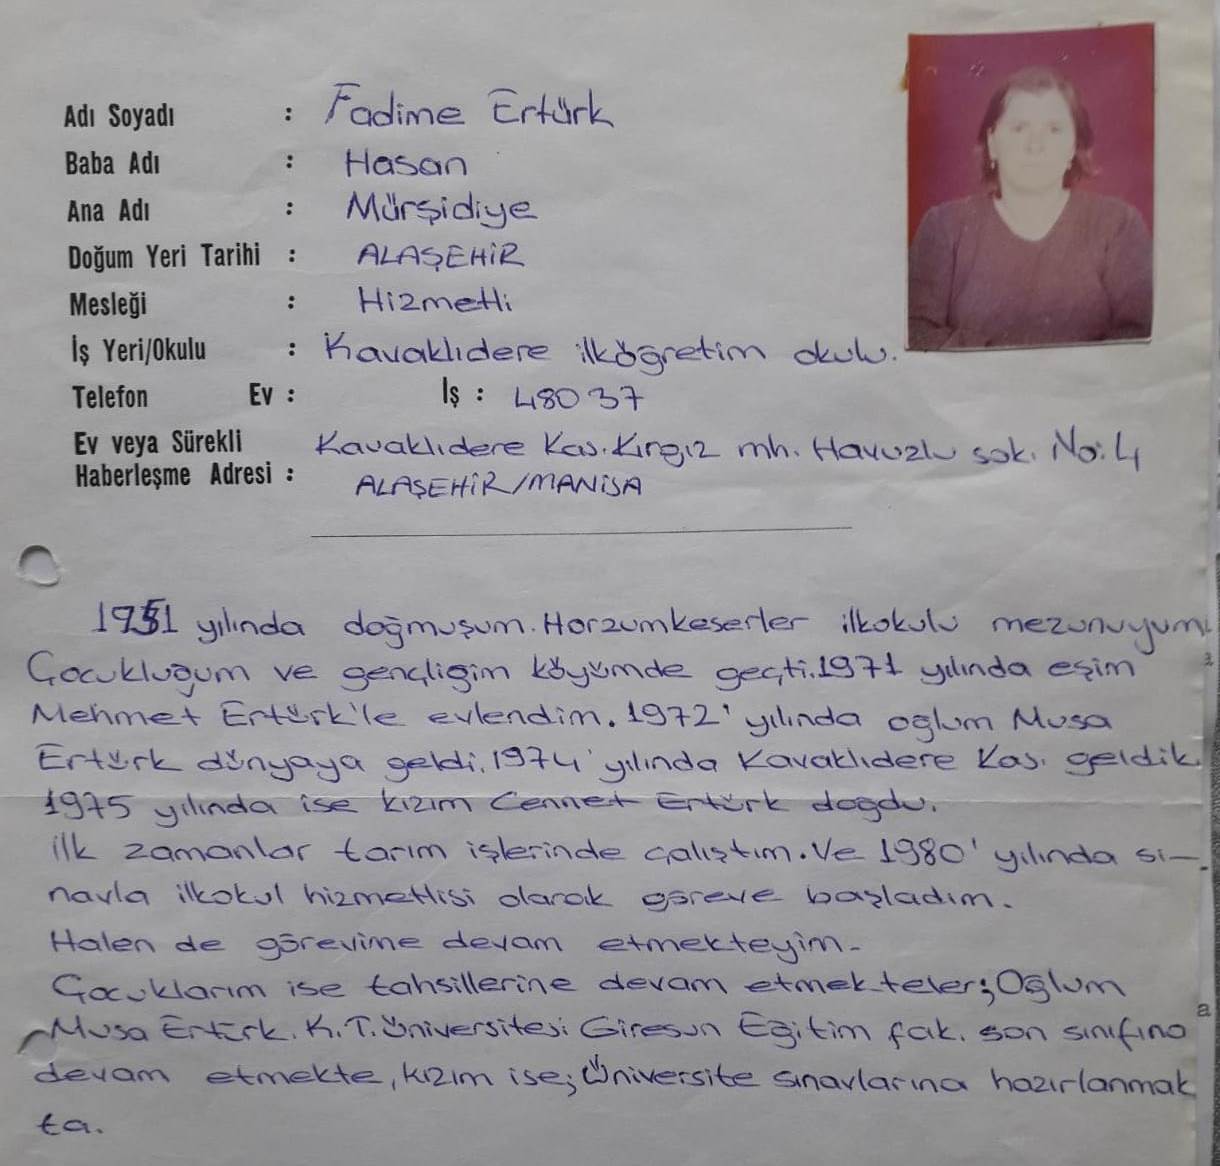 Adı Soyadı : Fadime Ertürk
Baba Adı : Hasan
Ana Adı : Mürşidiye
Doğum Yeri Tarihi : ALAŞEHİR
Mesleği : Hizmetli
İş Yeri/Okulu : Kavaklıdere ilköğretim okulu.
Telefon Ev : İş : 480 37
Ev veya Sürekli Kavaklıdere Kas. Kırgız mh. Havuzlu sok. No: 4
Haberleşme Adresi : ALAŞEHİR/MANİSA
1951 yılında doğmuşum. Horzumkeserler ilkokulu mezunuyum.
Çocukluğum ve gençliğim köyümde geçti. 1971 yılında eşim
Mehmet Ertürk'le evlendim. 1972' yılında oğlum Musa
Ertürk dünyaya geldi. 1974' yılında Kavaklıdere Kas. geldik.
1975 yılında ise kızım Cennet Ertürk doğdu.
ilk zamanlar tarım işlerinde çalıştım. Ve 1980' yılında sı-
navla ilkokul hizmetlisi olarak göreve başladım.
Halen de görevime devam etmekteyim.
Çocuklarım ise tahsillerine devam etmekteler; Oğlum
Musa Ertürk. K.T. Üniversitesi Giresun Eğitim fak. son sınıfına
devam etmekte, kızım ise; Üniversite sınavlarına hazırlanmak
ta.